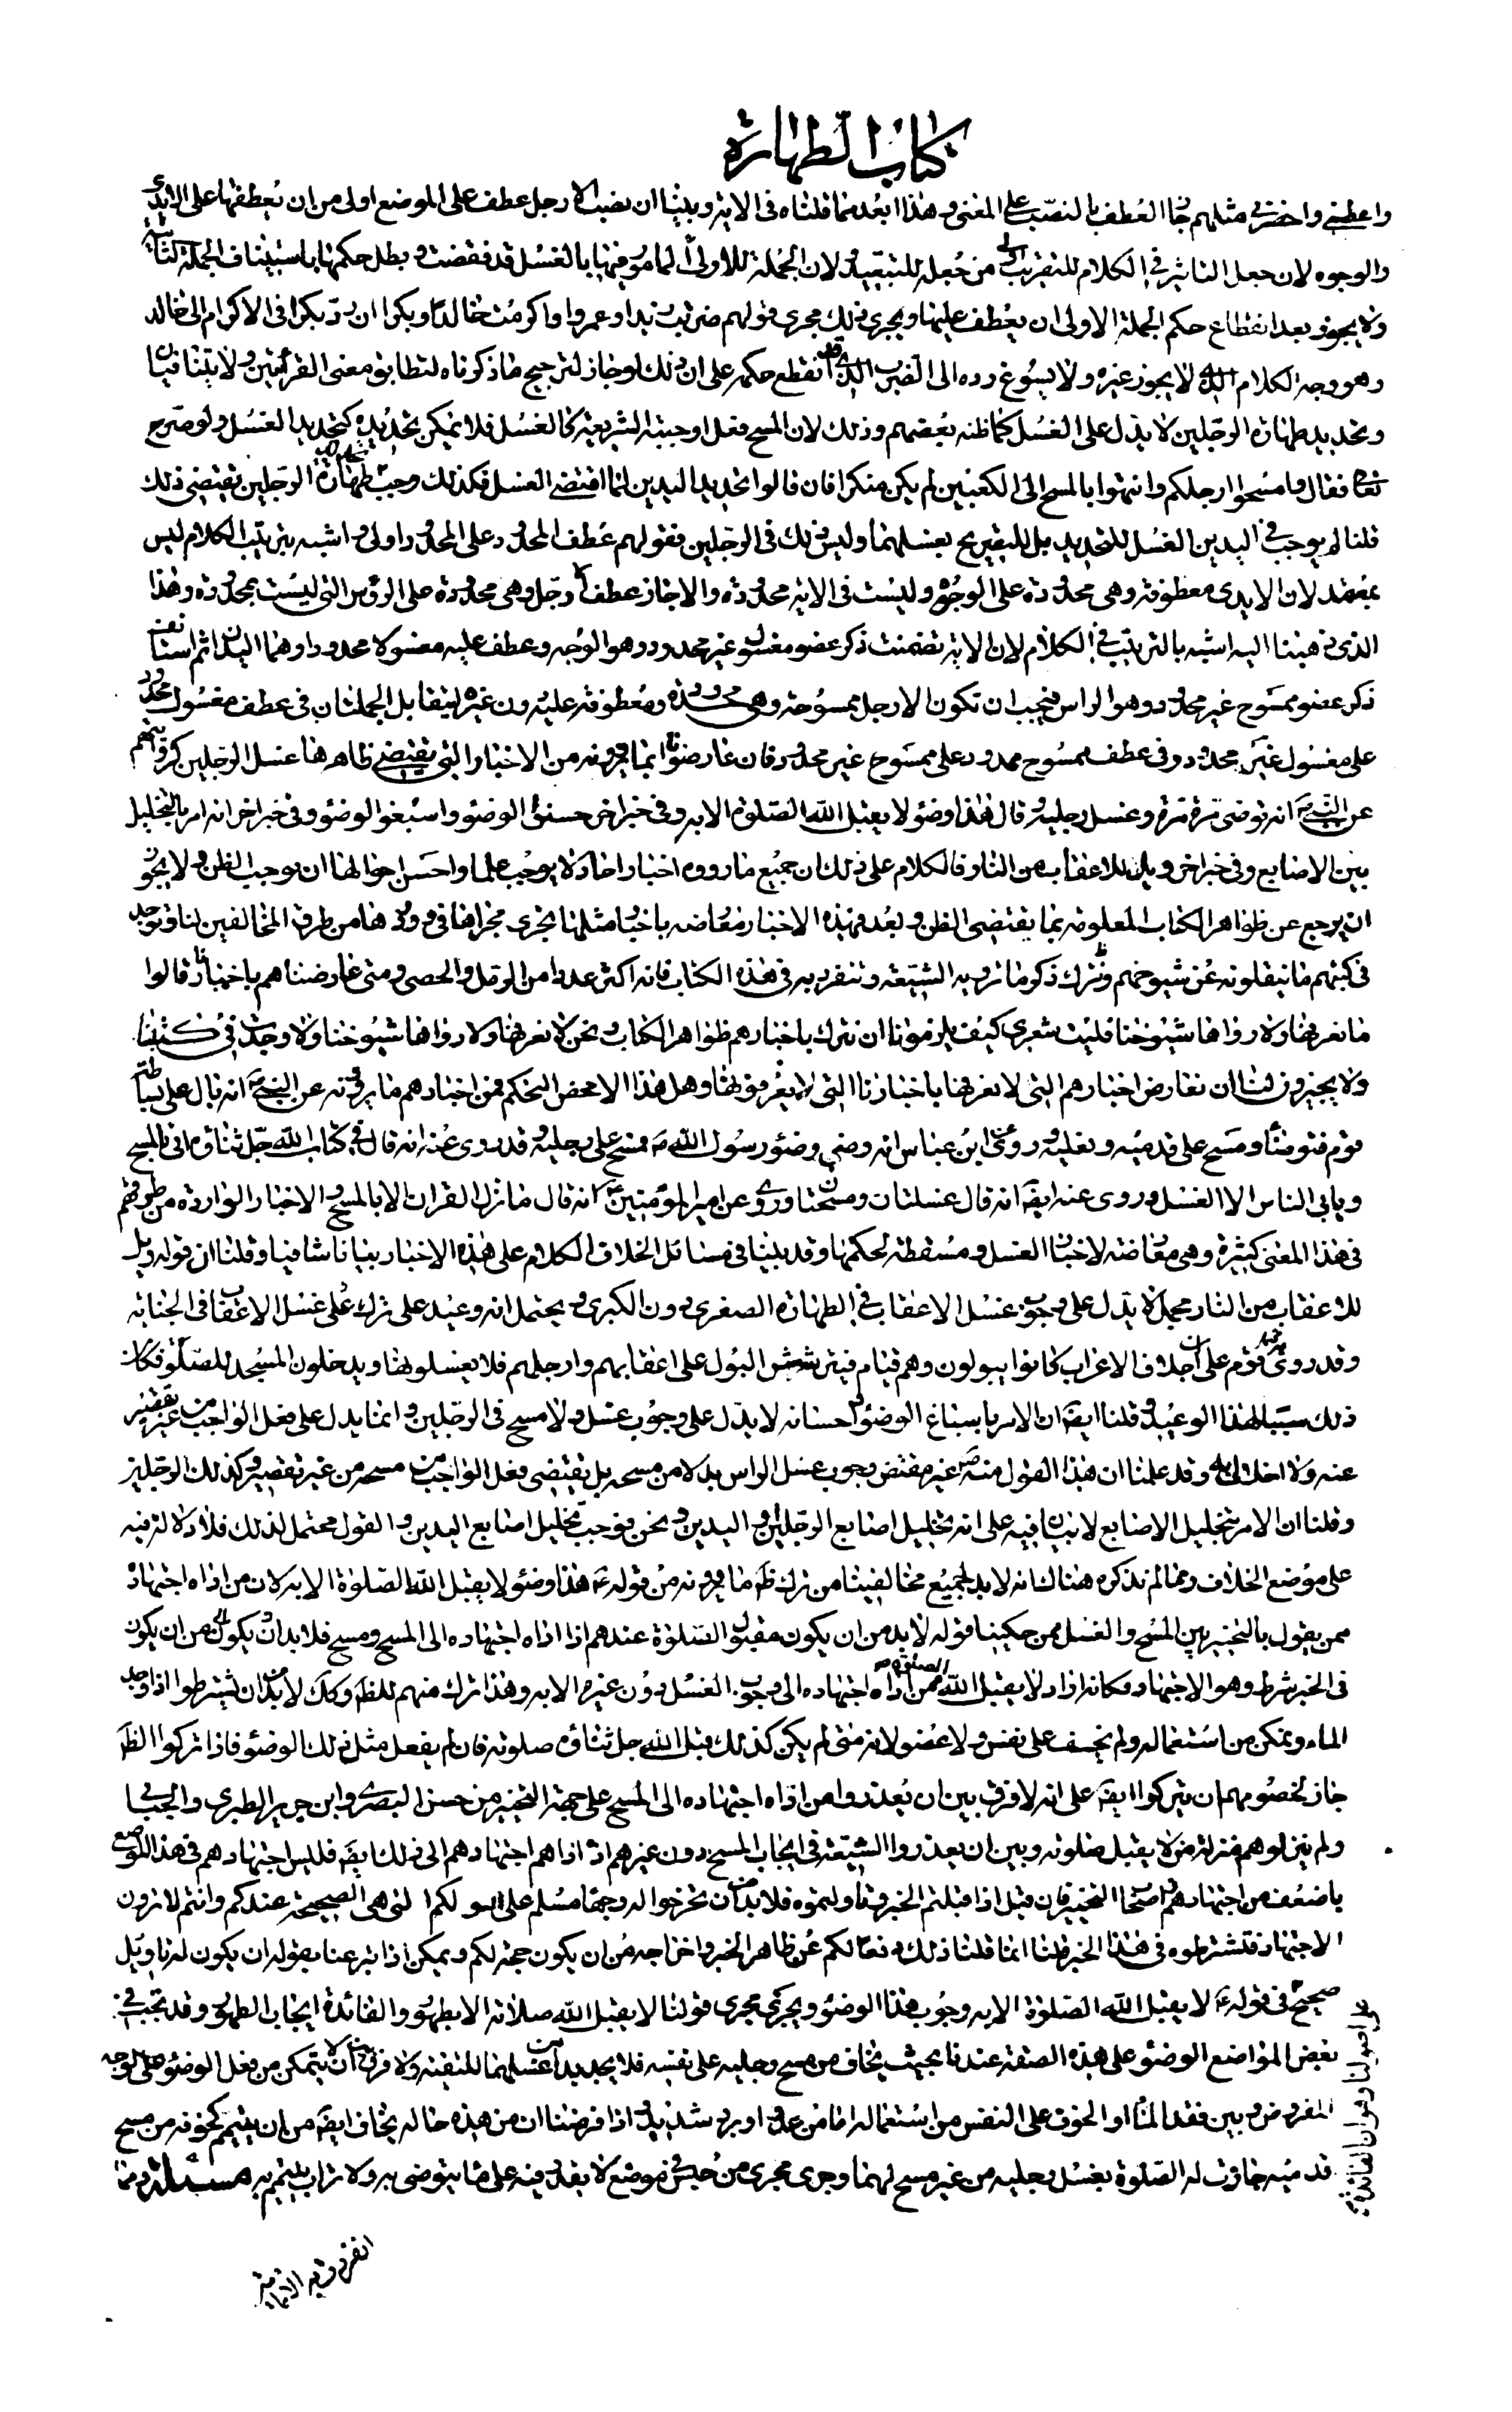 كتاب الطهارة
واعطني واحضر في مثلهم جاز العطف بالنصب على المعنى وهذا ابعد مما قلناه في الاية وبينا ان نصب الارجل عطف على الموضع اولى من ان نعطفها على الايدي
والوجوه لان جعل التاثير في الكلام للقريب اولى من جعله للبعيد ولان الجملة الاولى المامور فيها بالغسل قد نقضت وبطل حكمها باستيناف الجملة الثانية
ولا يجوز بعد انقطاع حكم الجملة الاولى ان يعطف عليها ويجري ذلك مجرى قولهم ضربت زيدا وعمروا واكرمت خالدا وبكرا ان رد بكرا في الاكرام الى خالد
وهو وجه الكلام الذي لا يجوز غيره ولا يسوغ رده الى الضرب الذي قد انقطع حكمه على ان ذلك لو جاز لترجح ما ذكرناه لتطابق معنى القرائتين ولا يتنافيان
وتحديد طهارة الرجلين لا يدل على الغسل كما ظنه بعضهم وذلك لان المسح فعل اوجبته الشريعة كالغسل فلا ينكر تحديده كتحديد الغسل ولو صرح
تعالى فقال وامسحوا ارجلكم وانتهوا بالمسح الى الكعبين لم يكن منكرا فان قالوا تحديد اليدين لما اقتضى الغسل فكذلك وجب تحديد طهارة الرجلين يقتضي ذلك
قلنا لم يوجب في اليدين الغسل للتحديد بل للتصريح بغسلهما وليس ذلك في الرجلين فقولهم عطف المحدود على المحدود اولى واشبه بترتيب الكلام ليس
بمعتمد لان الايدي معطوفة وهي محدودة على الوجوه وليست في الاية محدودة والا جاز عطف الارجل وهي محدودة على الرؤس التي ليست بمحدودة وهذا
الذي ذهبنا اليه اشبه بالترتيب في الكلام لان الاية تضمنت ذكر عضو مغسول غير محدود وهو الوجه وعطف عليه مغسولا محدودا وهما اليدان ثم استانف
ذكر عضو ممسوح غير محدود وهو الراس فيجب ان تكون الارجل ممسوحة وهي محدودة ومعطوفة عليه دون غيره ليتقابل الجملتان في عطف مغسول محدود
على مغسول غير محدود وفي عطف ممسوح محدود على ممسوح غير محدود فان عارضونا بما يروونه من الاخبار التي يقتضي ظاهرها غسل الرجلين كروايتهم
عن النبي ص انه توضى مرة مرة وغسل رجليه وقال هذا وضوء لا يقبل الله الصلوة الا به وفي خبر اخر حسنوا الوضوء واسبغوا الوضوء وفي خبر اخر انه امر بالتخليل
بين الاصابع وفي خبر اخر ويل للاعقاب من النار فالكلام على ذلك ان جميع ما رووه اخبار احاد لا يوجب علما واحسن احوالها ان يوجب الظن ولا يجوز
ان يرجع عن ظواهر الكتاب المعلومة بما يقتضي الظن وبعد فهذه الاخبار معارضة باخبار مثلها تجري مجراها في ورودها من طرق المخالفين لنا وتوجد
في كتبهم مما ينقلونه عن شيوخهم ونترك ذكر ما ترويه الشيعة وتنفرد به في هذه الكتاب فانه اكثر عددا من الرمل والحصى ومتى عارضناهم باخبارنا قالوا
ما نعرفها ولا رواها شيوخنا فليت شعري كيف يلزموننا ان نترك باخبارهم ظواهر الكتاب ونحن لا نعرفها ولا رواها شيوخنا ولا وجدت في كتبنا
ولا يجيزون لنا ان نعارض اخبارهم التي لا نعرفها باخبارنا التي لا يعرفونها وهل هذا الا محض التحكم فمن اخبارهم ما يروونه عن النبي ص انه بال على سباطة
قوم فتوضأ ومسح على قدميه ونعليه وروي عن ابن عباس انه وصف وضوء رسول الله ص فمسح على رجليه وقد روي عنه انه قال في كتاب الله جل ثناؤه اني بالمسح
ويابى الناس الا الغسل وروى عنه ايضا انه قال غسلتان ومسحتان وروي عن امير المؤمنين ع انه قال ما نزل القران الا بالمسح والاخبار الواردة من طرقهم
في هذا المعنى كثيرة وهي معارضة لاخبار الغسل ومسقطة لحكمها وقد بينا في مسائل الخلاف الكلام على هذه الاخبار بيانا شافيا وقلنا ان قوله ويل
للاعقاب من النار مجمل لا يدل على وجوب غسل الاعقاب في الطهارة الصغرى دون الكبرى ويحتمل انه وعيد على ترك غسل الاعقاب في الجنابة
وقد روى قوم ان اجلاف الاعراب كانوا يبولون وهم قيام فيترشش البول على اعقابهم وارجلهم فلا يغسلونها ويدخلون المسجد للصلوة فكان
ذلك سببا لهذا الوعيد وقلنا ايضا ان الامر باسباغ الوضوء واحسانه لا يدل على وجوب غسل ولا مسح في الرجلين وانما يدل على فعل الواجب من غير تقصير
عنه ولا اخلال به وقد علمنا ان هذا القول منه ص غير مقتض وجوب غسل الراس بدلا من مسحه بل يقتضي فعل الواجب من مسحه من غير تقصير وكذلك الرجلين
وقلنا ان الامر بتخليل الاصابع لا بيان فيه على انه تخليل اصابع الرجلين او اليدين ونحن نوجب تخليل اصابع اليدين والقول محتمل لذلك فلا دلالة فيه
على موضع الخلاف ومما لم نذكره هناك انه لابد لجميع مخالفينا من ترك ظاهر ما يروونه من قوله ع هذا وضوء لا يقبل الله الصلوة الا به لان من اداه اجتهاده
ممن يقول بالتخيير بين المسح والغسل ممن حكينا قوله لابد من ان يكون مقبول الصلوة عندهم اذا اداه اجتهاده الى المسح ومسح فلابد من ان يكون
في الخبر شرط وهو الاجتهاد فكانه اراد لا يقبل الله الصلوة ممن اداه اجتهاده الى وجوب الغسل دون غيره الا به وهذا ترك منهم للظاهر وكك لابد من ان يشترطوا اذا وجد
الماء وتمكن من استعماله ولم يخف على نفس ولا عضو لانه متى لم يكن كذلك قبل الله جل ثناؤه صلوته فان لم يفعل مثل ذلك الوضوء فاذا تركوا الظاهر
جاز لخصومهم ان يتركوا ايضا على انه لا فرق بين ان يعذروا من اداه اجتهاده الى المسح على جهة التخيير من حسن البصري وابن جرير الطبري والجبائي
ولم ينزلوهم منزلة من لا يقبل صلوته وبين ان يعذروا الشيعة في ايجاب المسح دون غيره اذا اداهم اجتهادهم الى ذلك ايضا فليس اجتهادهم في هذا الموضع
باضعف من اجتهاد اصحاب التخيير فان قيل اذا قبلتم الخبر وتاولتموه فلابد من ان تخرجوا له وجها مسلم على اصولكم التي هي الصحيحة عندكم وانتم لا ترون
الاجتهاد فتشترطوه في هذا الخبر قلنا انما قلنا ذلك دفعا لكم عن ظاهر الخبر واخراجه من ان يكون حجة لكم ويمكن اذا تبرعنا بقوله ان يكون له تاويل
صحيح في قوله ع لا يقبل الله الصلوة الا به وجوب هذا الوضوء ويجري مجرى قولنا لا يقبل الله صلاته الا بطهور والفائدة ايجاب الطهور وقد تجب في
بعض المواضع الوضوء على هذه الصفة عندنا بحيث يخاف من مسح رجليه على نفسه فلا يجد بدا من غسلهما للتقية ولا فرق بين ان لا يتمكن من فعل الوضوء على الوجه
المفروض وبين فقد الماء او الخوف على النفس من استعماله اما من عدو او برد شديد اذا فرضنا ان من هذه حاله يخاف ايضا من ان يتيمم كخوفه من مسح
قدميه جازت له الصلوة بغسل رجليه من غير مسح لهما وجرى مجرى من حبس في موضع لا يقدر فيه على ما يتوضى به ولا تراب يتيمم به مسئلة ومما
على اصولنا وهو ان الفائدة
انفردت به الامامية